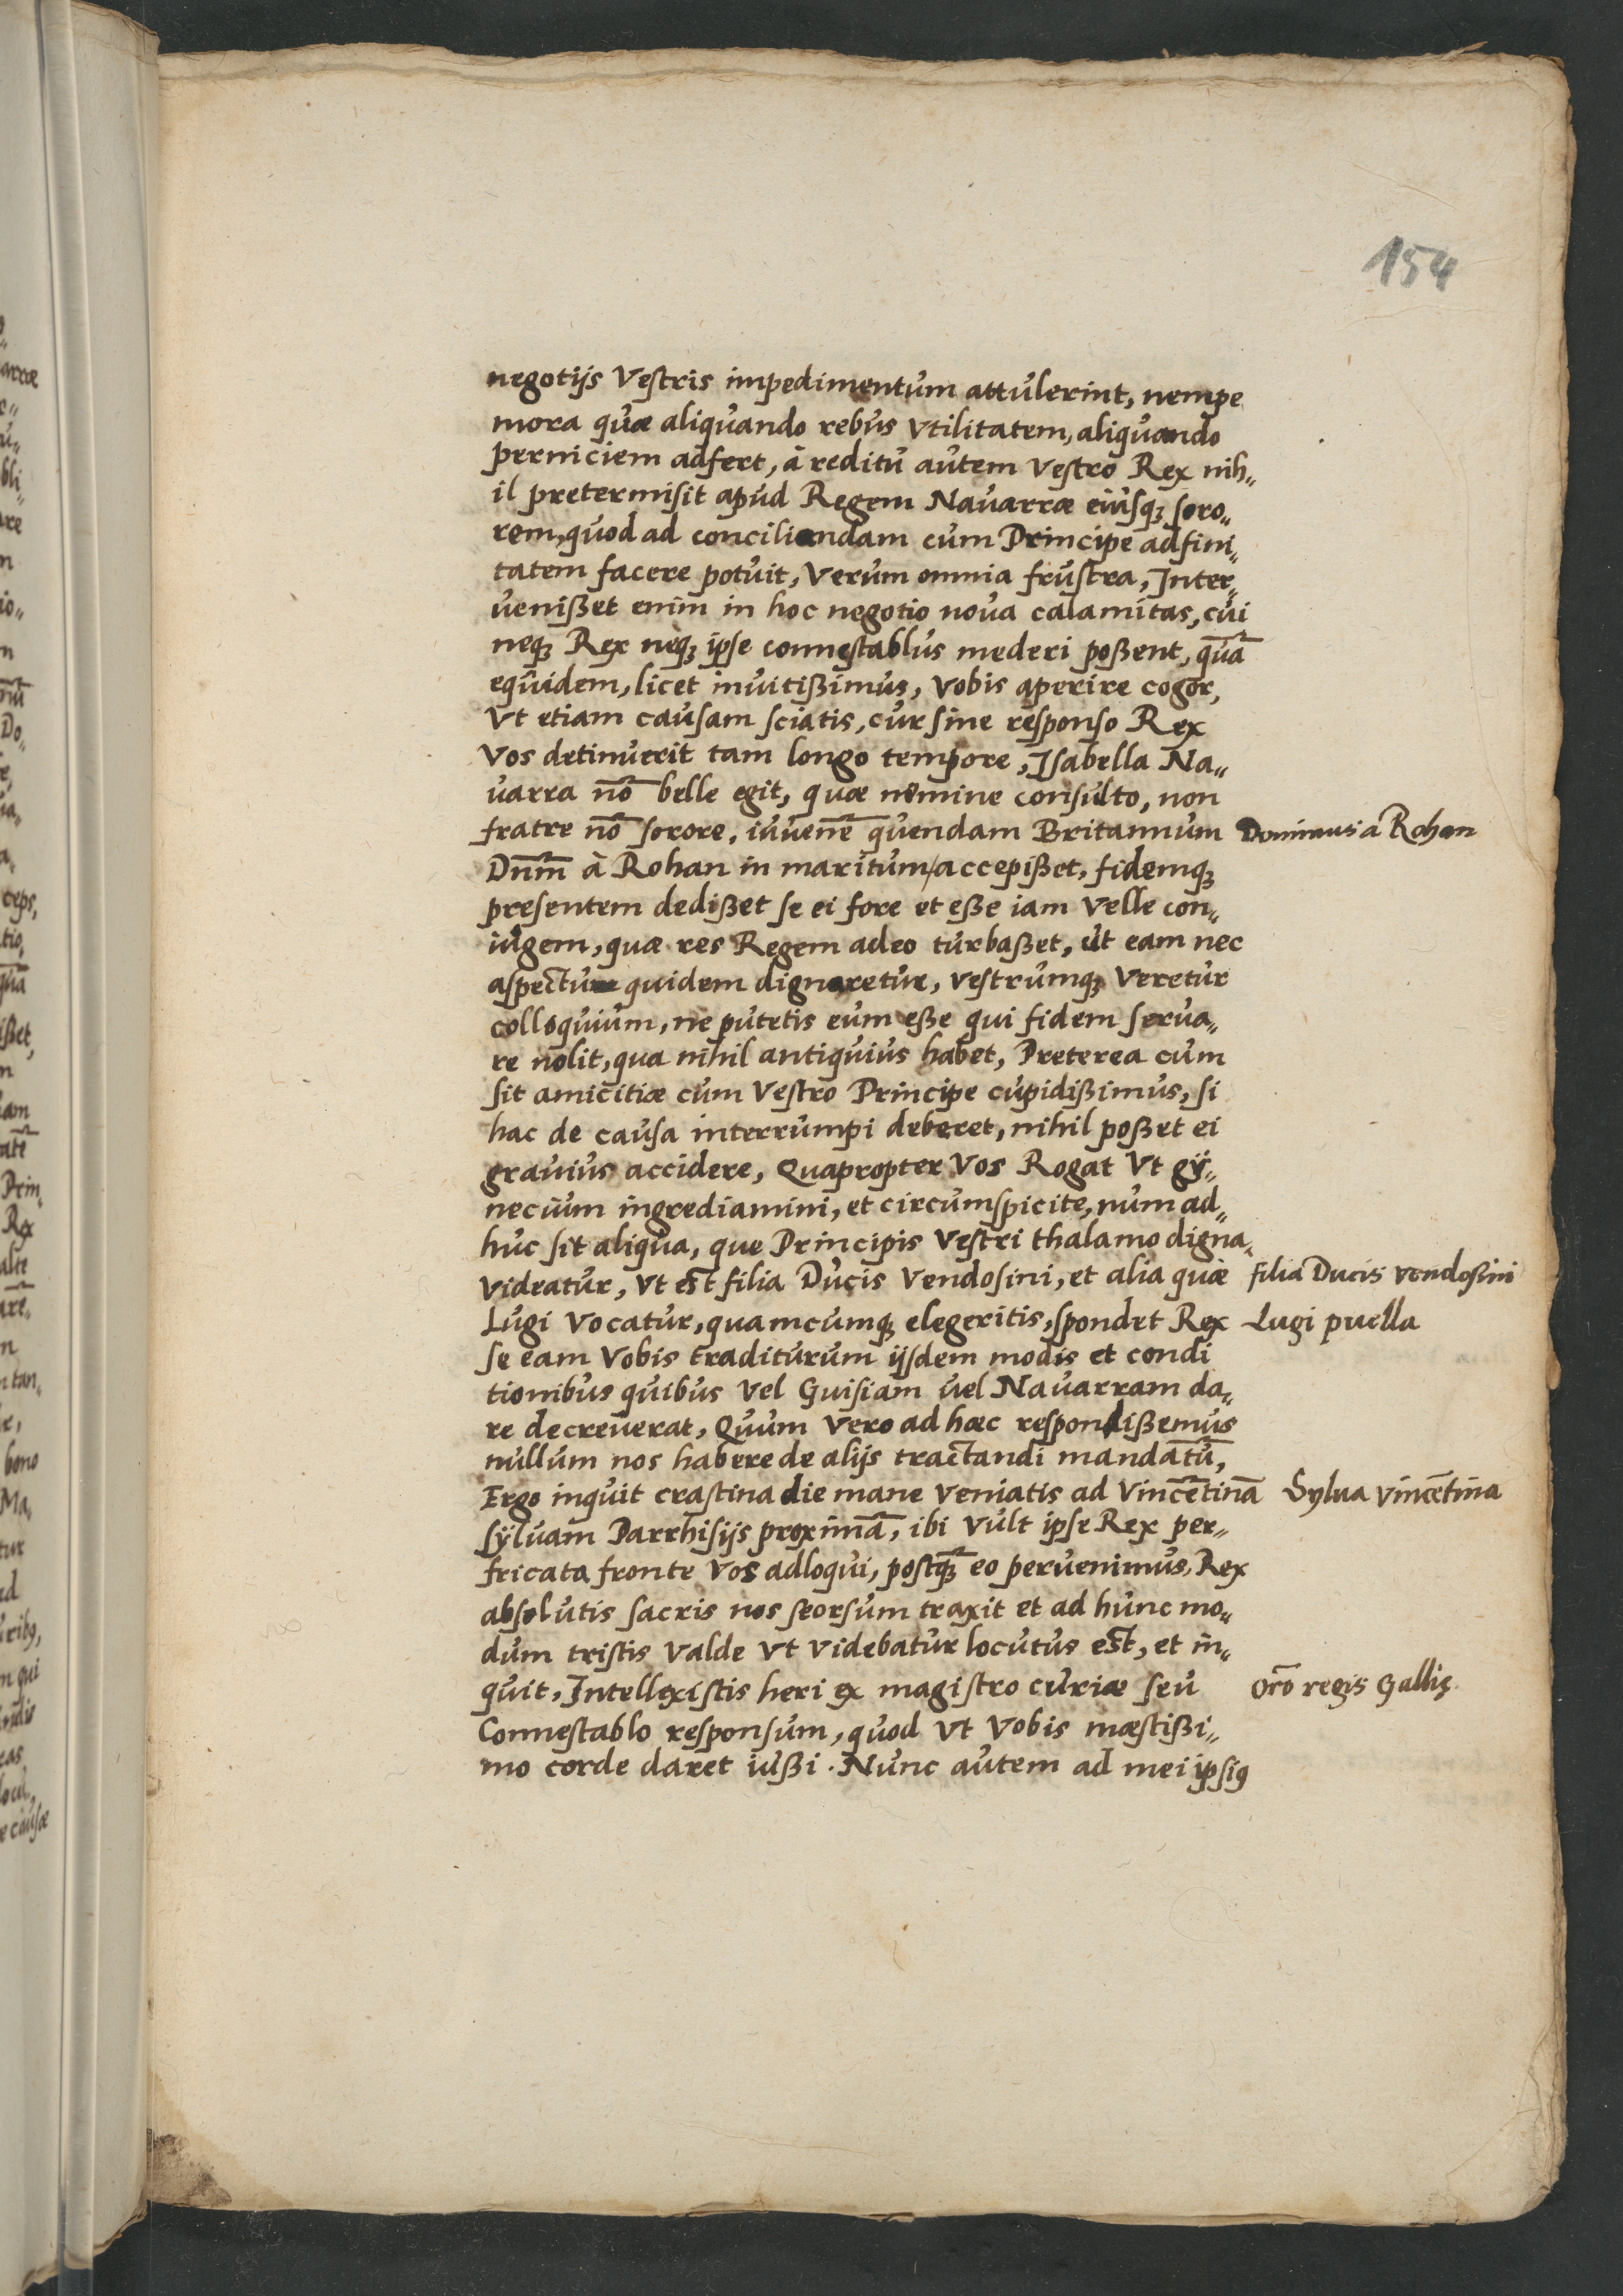 154
negotijs Vestris impedimentum attulerint, nempe
mora quæ aliquando rebus Vtilitatem, aliquando
perniciem adfert, à reditu autem Vestro Rex nih„
il pretermisit apud Regem Nauarræ eiusqꝫ soro„
rem, quod ad conciliandam cum Principe adfini„
tatem facere potuit, Verum omnia frustra, Inter„
uenißet enim in hoc negotio noua calamitas, cui
neqꝫ Rex neqꝫ ipse connestablus mederi poßent, quā
equidem, licet inuitißimus, Vobis aperire cogor,
Vt etiam causam sciatis, cur sine responso Rex
Vos detinuerit tam longo tempore, Isabella Na„
uarra nō belle egit, quæ nemine consulto, non
fratre nō sorore, iuuenē quendam Britannum Dominus à Rohan
Dnm̄ à Rohan in maritum accepißet, fidemqꝫ
presentem dedißet se ei fore et eße iam Velle con„
iugem, quæ res Regem adeo turbaßet, ut eam nec
aspectu quidem dignaretur, Vestrumqꝫ Veretur
colloquium, ne putetis eum eße qui fidem serua„
re nolit, qua nihil antiquius habet, Preterea cum
sit amicitiæ cum Vestro Principe cupidißimus, si
hac de causa interrumpi deberet, nihil poßet ei
grauius accidere, Quapropter Vos Rogat Vt gÿ„
necium ingrediamini, et circumspicite, num ad„
huc sit aliqua, que Principis Vestri thalamo digna
Videatur, Vt est filia Ducis Vendosini, et alia quæ filia Ducis vendosini
Lugi Vocatur, quamcumqꝫ elegeritis, spondet Rex Lugi puella
se eam Vobis traditurum ijsdem modis et condi
tionibus quibus Vel Guisiam uel Nauarram da„
re decreuerat, Quum Vero ad hæc respondißemus
nullum nos habere de alijs tractandi mandatū,
Ergo inquit crastina die mane Veniatis ad Vincētinā Sylua vincētina
sÿluam Parrhisijs proximā, ibi Vult ipse Rex per„
fricata fronte Vos adloqui, postqꝫ̄ eo peruenimus, Rex
absolutis sacris nos seorsum traxit et ad hunc mo„
dum tristis Valde Vt Videbatur locutus est, et in„
quit, Intellexistis heri ex magistro curiæ seu Orō regis Gallię
Connestablo responsum, quod Vt Vobis mæstißi„
mo corde daret iußi. Nunc autem ad mei ipsiꝰ